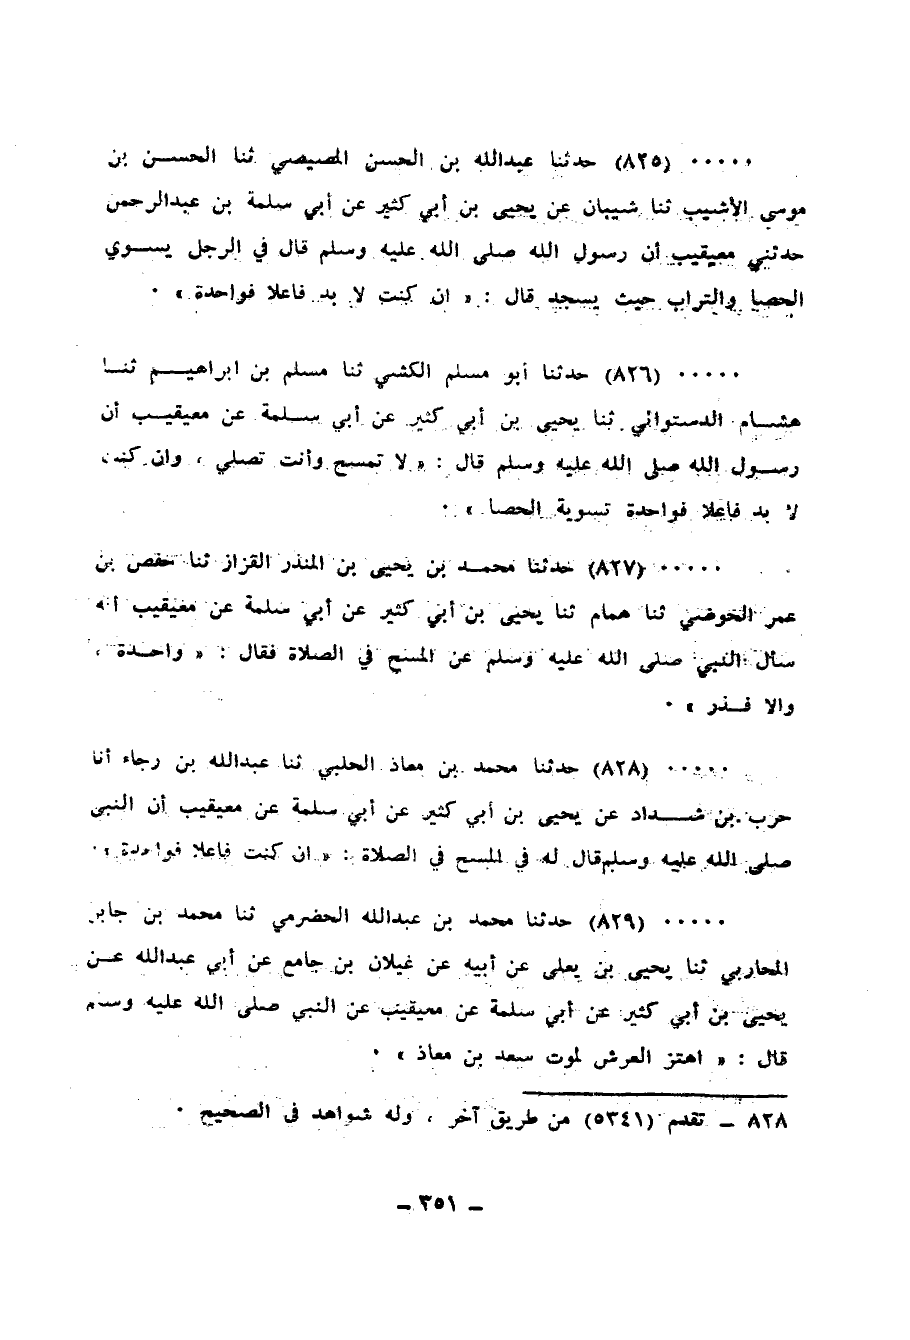 ..... (٨٢٥) حدثنا عبدالله بن الحسن المصيصي ثنا الحسن بن
موسى الأشيب ثنا شيبان عن يحيى بن أبي كثير عن أبي سلمة بن عبدالرحمن
حدثني معيقيب أن رسول الله صلى الله عليه وسلم قال في الرجل يسوي
الحصا والتراب حيث يسجد قال : « ان كنت لا بد فاعلا فواحدة » ٠
..... (٨٢٦) حدثنا أبو مسلم الكشي ثنا مسلم بن ابراهيم ثنا
هشام الدستوائي ثنا يحيى بن أبي كثير عن أبي سلمة عن معيقيب أن
رسول الله صلى الله عليه وسلم قال : « لا تمسح وأنت تصلي ، وان كنت
لا بد فاعلا فواحدة تسوية الحصا » ٠
..... (٨٢٧) حدثنا محمد بن يحيى بن المنذر القزاز ثنا حفص بن
عمر الحوضي ثنا همام ثنا يحيى بن أبي كثير عن أبي سلمة عن معيقيب أنه
سأل النبي صلى الله عليه وسلم عن المسح في الصلاة فقال : « واحدة ،
والا فذر » ٠
..... (٨٢٨) حدثنا محمد بن معاذ الحلبي ثنا عبدالله بن رجاء أنا
حرب بن شداد عن يحيى بن أبي كثير عن أبي سلمة عن معيقيب أن النبي
صلى الله عليه وسلم قال له في المسح في الصلاة : « ان كنت فاعلا فواحدة » ٠
..... (٨٢٩) حدثنا محمد بن عبدالله الحضرمي ثنا محمد بن جابر
المحاربي ثنا يحيى بن يعلى عن أبيه عن غيلان بن جامع عن أبي عبدالله عن
يحيى بن أبي كثير عن أبي سلمة عن معيقيب عن النبي صلى الله عليه وسلم
قال : « اهتز العرش لموت سعد بن معاذ » ٠
٨٢٨ ـ تقدم (٥٣٤١) من طريق آخر ، وله شواهد في الصحيح ٠
ـ ٣٥١ ـ